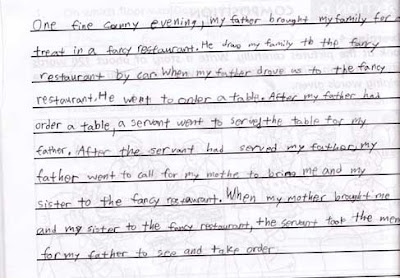 One fine sunny evening, my father brought my family for a
treat in a fancy restaurant. He drove my family to the fancy
restaurant by car. When my father drove us to the fancy
restaurant, He went to order a table. After my father had
order a table, a servant went to serving the table for my
father. After the servant had served my father, my
father went to call for my mothe to bring me and my
sister to the fancy restaurant. When my mother brought me
and my sister to the fancy restaurant, the servant took the men
for my father to see and take order